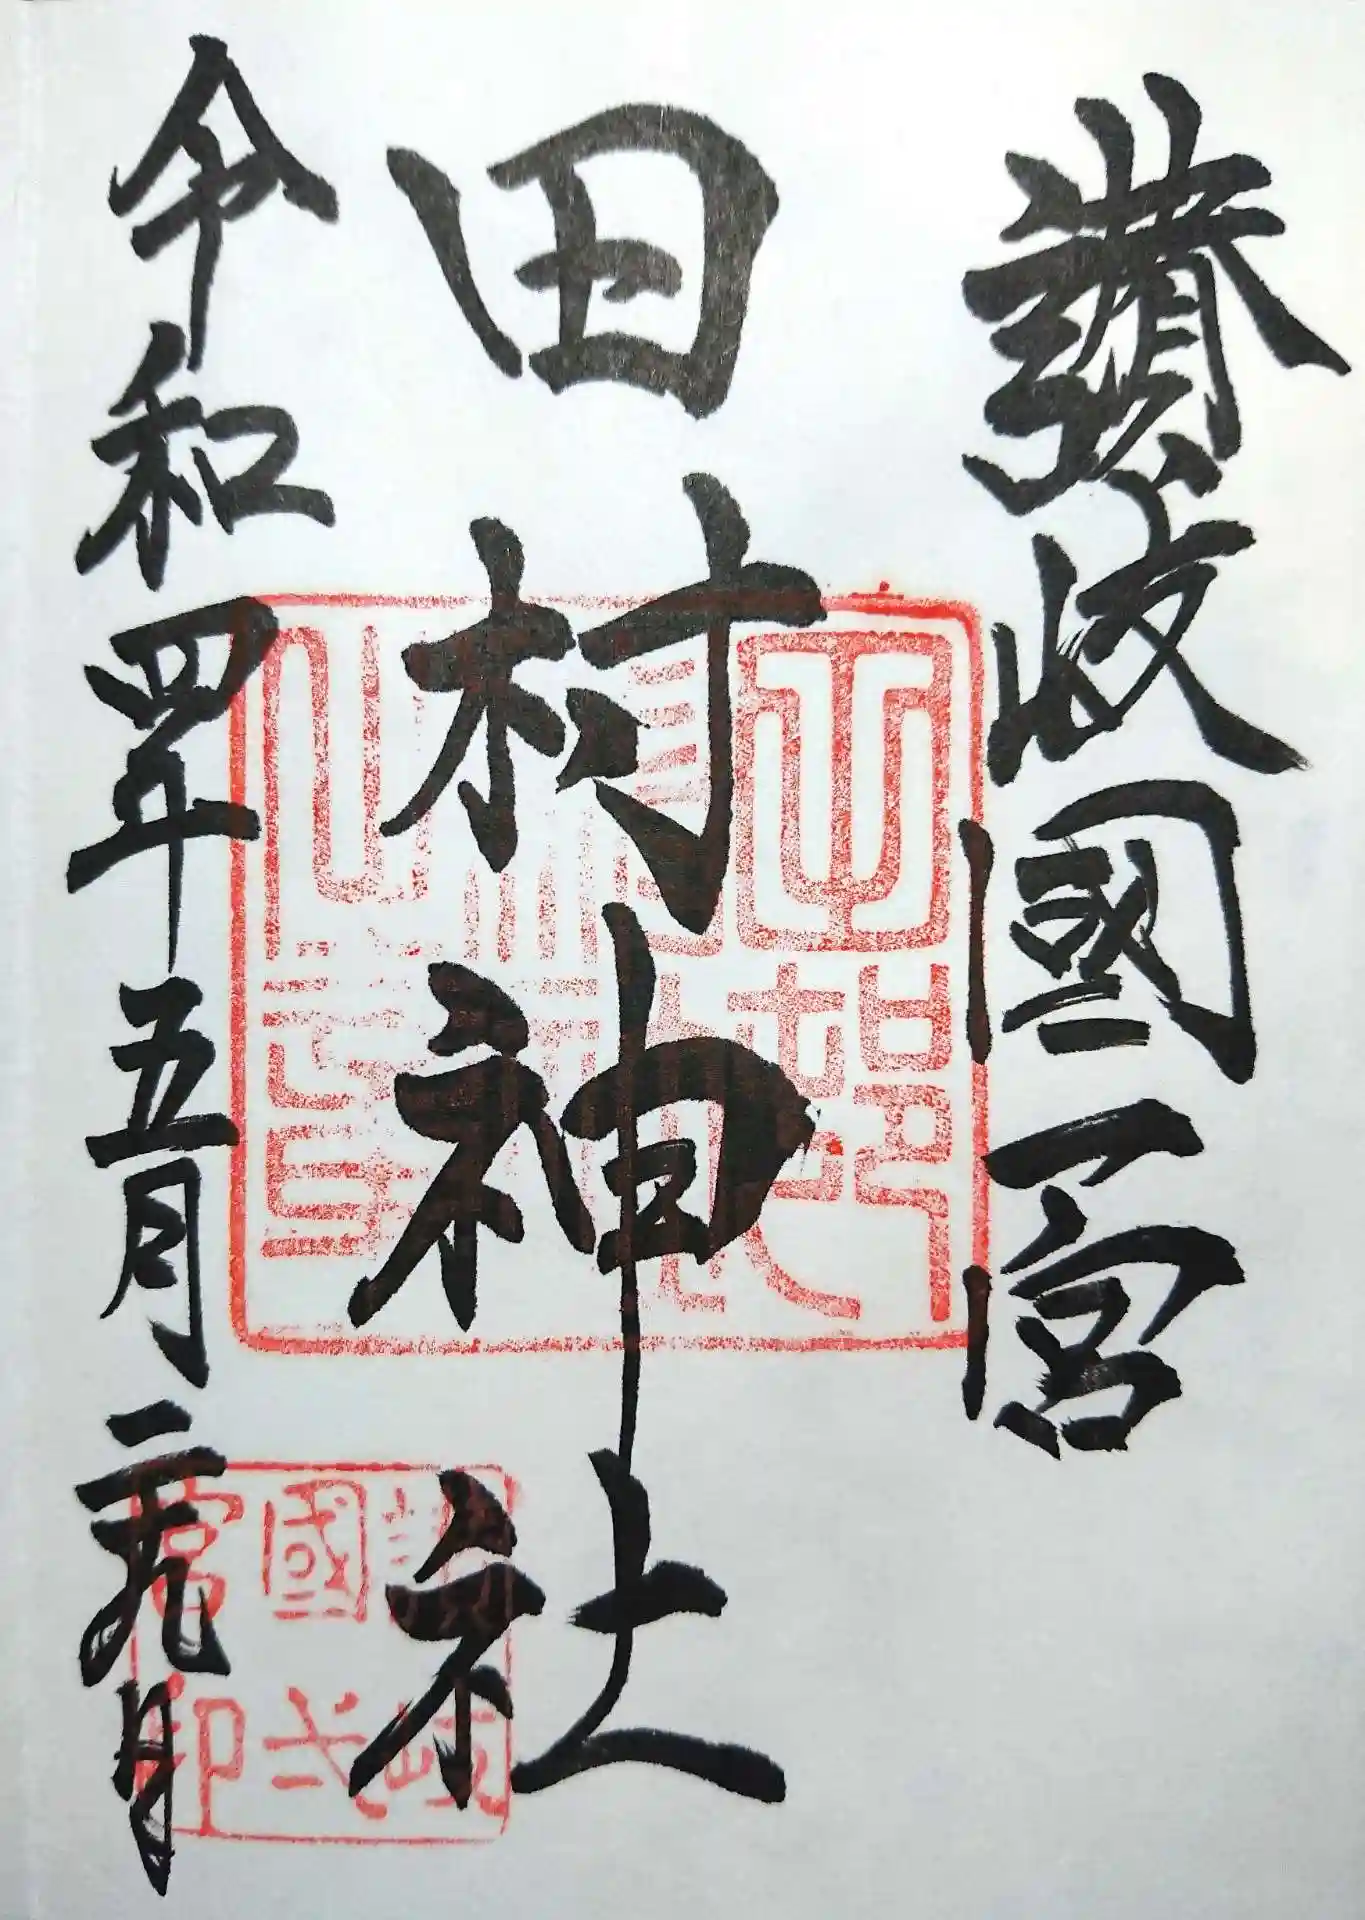 讃岐國一宮
田村神社
令和四年五月二十九日
讃岐
國弌
宮印